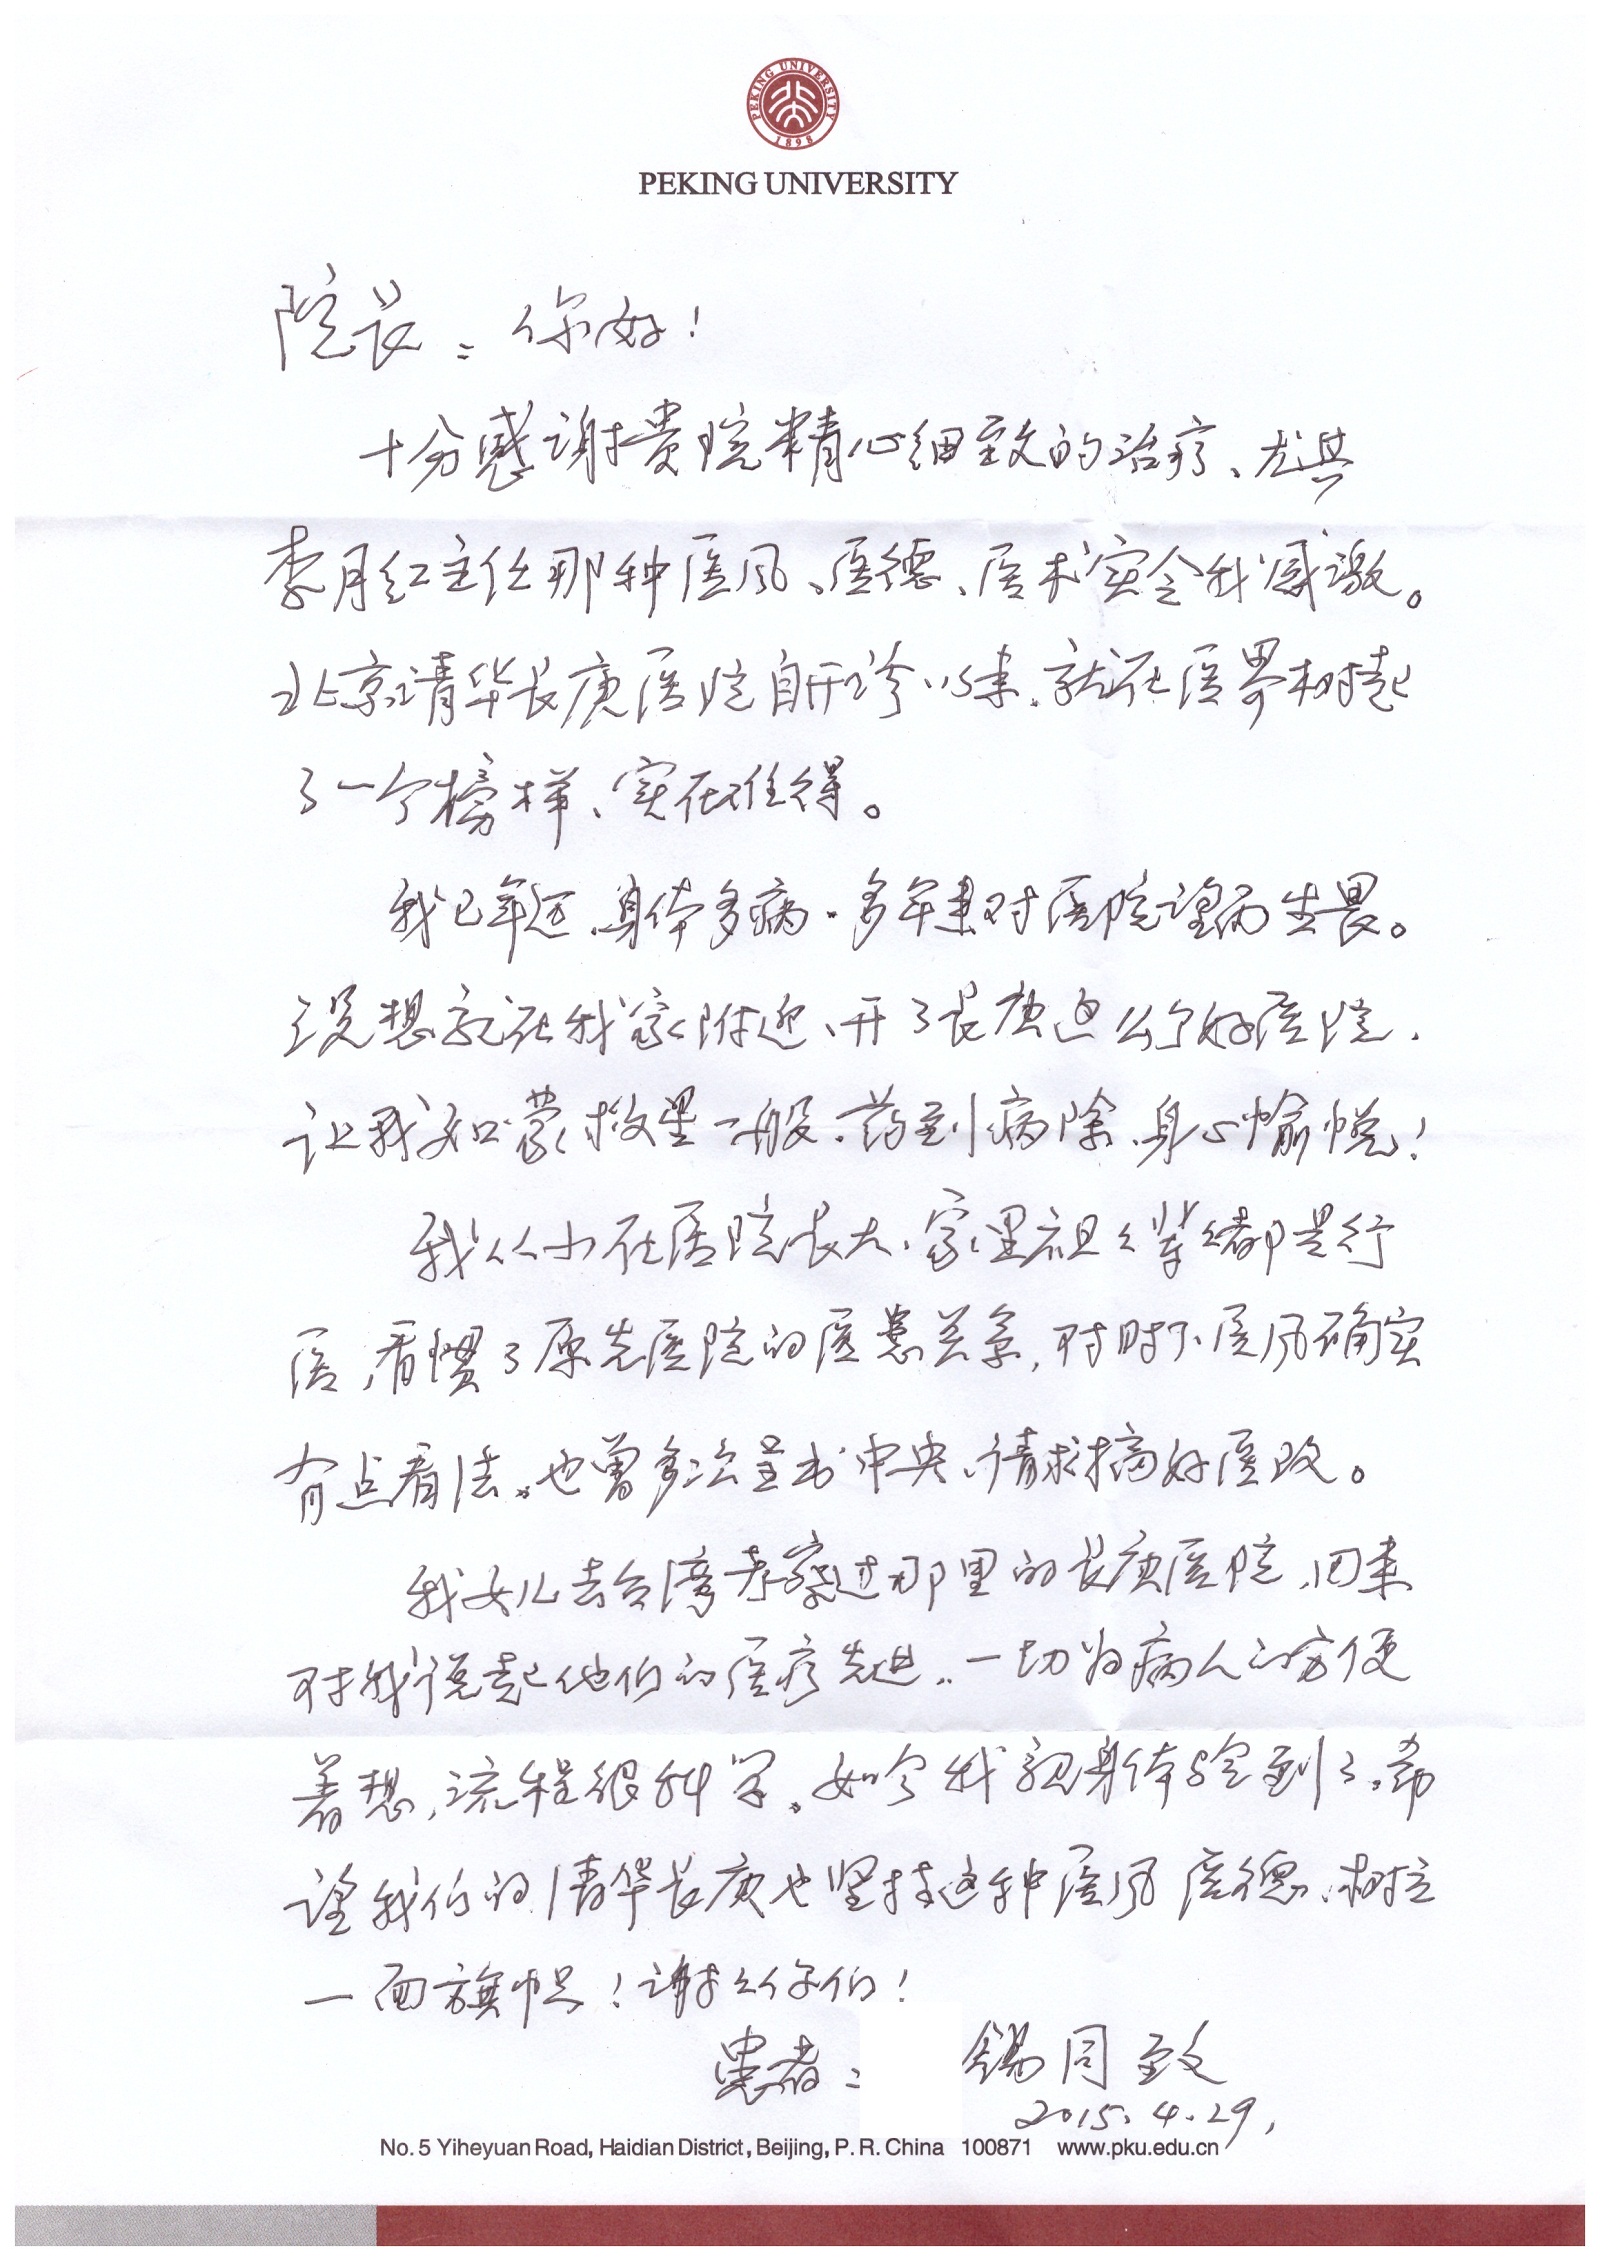 PEKING UNIVERSITY
1898
PEKING UNIVERSITY
院长：你好！
十分感谢贵院精心细致的治疗、尤其
李月红主任那种医风、医德、医术实令我感激。
北京清华长庚医院自开诊以来，就在医界树起
了一个榜样、实在难得。
我已年迈、身体多病．多年来对医院望而生畏。
没想就在我家附近、开了长庚这么个好医院，
让我如蒙救星一般．药到病除、身心愉悦！
我从小在医院长大、家里祖々辈々都是行
医，看惯了原先医院的医患关系，对时下医风确实
有点看法。也曾多次呈书中央、请求搞好医改。
我女儿去台湾考察过那里的长庚医院，回来
对我说起他们的医疗先进．一切为病人的方便
着想，流程很科学。如今我親身体验到了。希
望我们的清华长庚也坚持这种医风医德、树立
一面旗帜！谢々你们！
患者： 锡同致
2015.4.29.
No. 5 Yiheyuan Road, Haidian District, Beijing, P. R. China 100871 www.pku.edu.cn